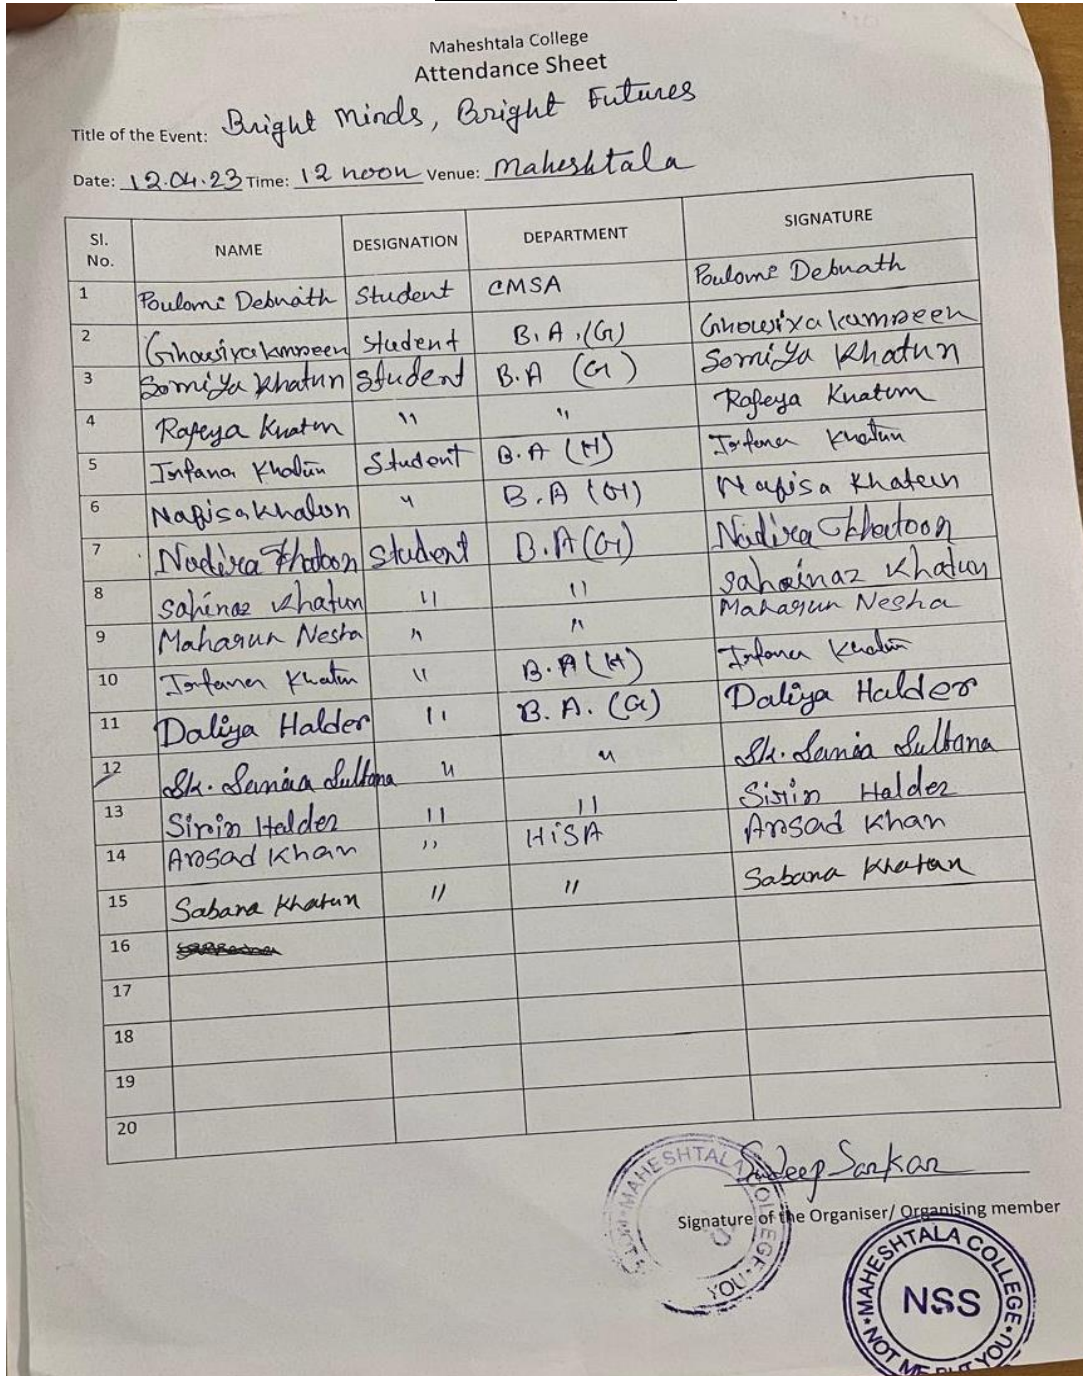 Maheshtala College
Attendance Sheet
Title of the Event: Bright Minds, Bright Futures
Date: 12.04.23 Time: 12 noon Venue: Maheshtala
Sl. No. NAME DESIGNATION DEPARTMENT SIGNATURE
1 Poulomi Debnath Student CMSA Poulomi Debnath
2 Student B.A.(G)
3 Somiya Khatun Student B.A (G) Somiya Khatun
4 Rafeya Khatun " " Rafeya Khatun
5 Irfana Khatun Student B.A (H) Irfana Khatun
6 Nafisa Khatun " B.A (G) Nafisa Khatun
7 Nadira Khatoon Student B.A (G) Nadira Khatoon
8 Sahinaz Khatun " " Sahainaz Khatun
9 Maharun Nesha " " Maharun Nesha
10 Irfana Khatun " B.A (H) Irfana Khatun
11 Daliya Halder " B.A. (G) Daliya Halder
12 Sk. Sania Sultana " " Sk. Sania Sultana
13 Sirin Halder " " Sirin Halder
14 Arsad Khan " HiSA Arsad Khan
15 Sabana Khatun " " Sabana Khatun
16
17
18
19
20
Sudeep Sarkar
Signature of the Organiser/ Organising member
MAHESHTALA COLLEGE YOU
MAHESHTALA COLLEGE NOT ME BUT YOU
NSS